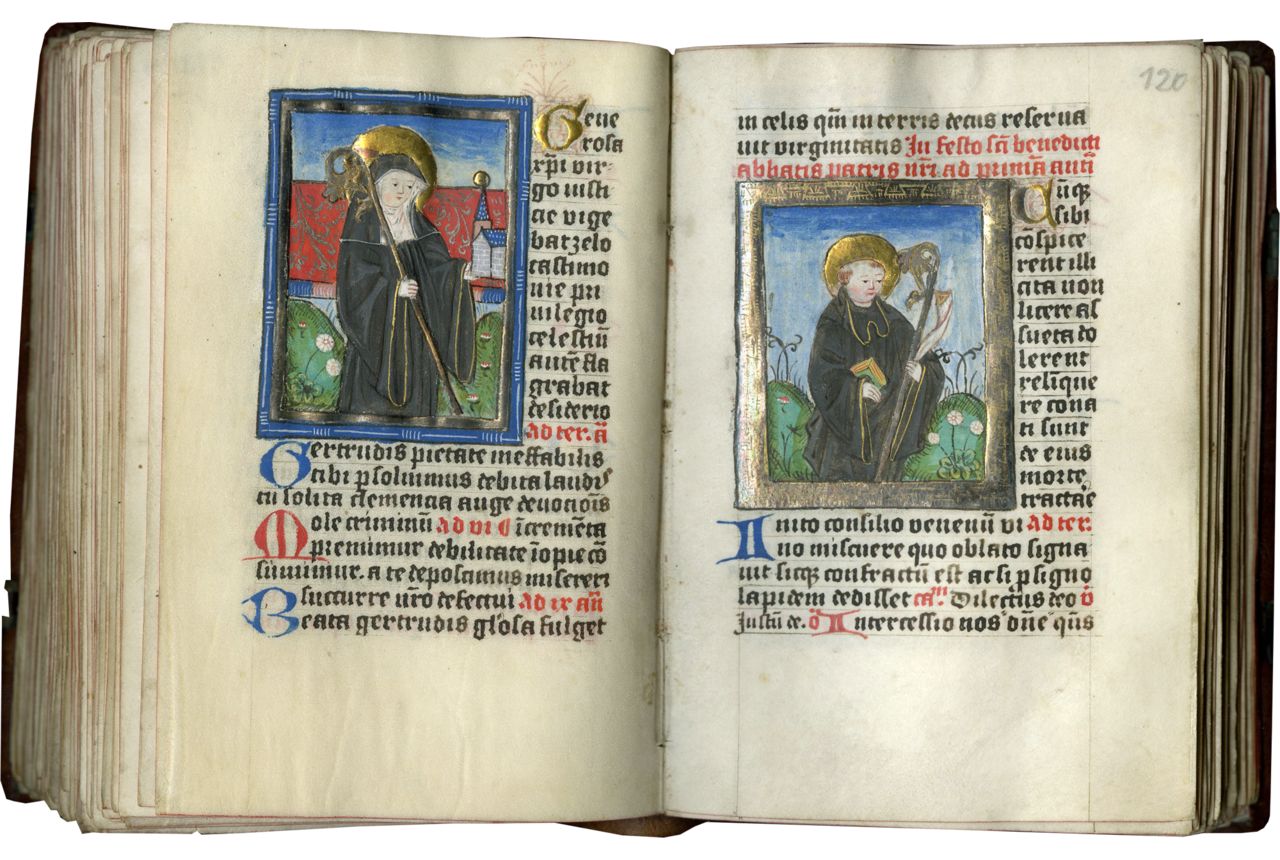 Gene
rosa
xp̄i vir-
go iusti
cie vige
bat zelo
castimo
nie pri
uilegio
celestiū
autē fla
grabat
desiderio
ad ter. añ
Gertrudis pietate ineffabilis
tibi p soluimus debita laudis
tu solita clemencia auge deuotiōis
Mole criminū ad vi īcremēta
premimur debilitate īopie cō
sumimur. a te deposcimus misereri
succurre nr̄o defectui ad ix añ
Beata gertrudis gl'osa fulget
120
in celis qm̄ in terris decus reserua
uit virginitatis In festo sc̄i benedicti
abbatis patris nr̄i ad primā antī
Cūq;
sibi
cōspice
rent illi
cita non
licere as
sueta do
lerent
relinque
re cona
ti sunt
de eius
morte
tractare
Inito consilio venenū vi ad ter.
no miscuere quo oblato signa
uit sicq; confractū est ac si p signo
lapidem dedisset ca^m Dilectus deo
Justū de. Intercessio nos dn̄e q̄s